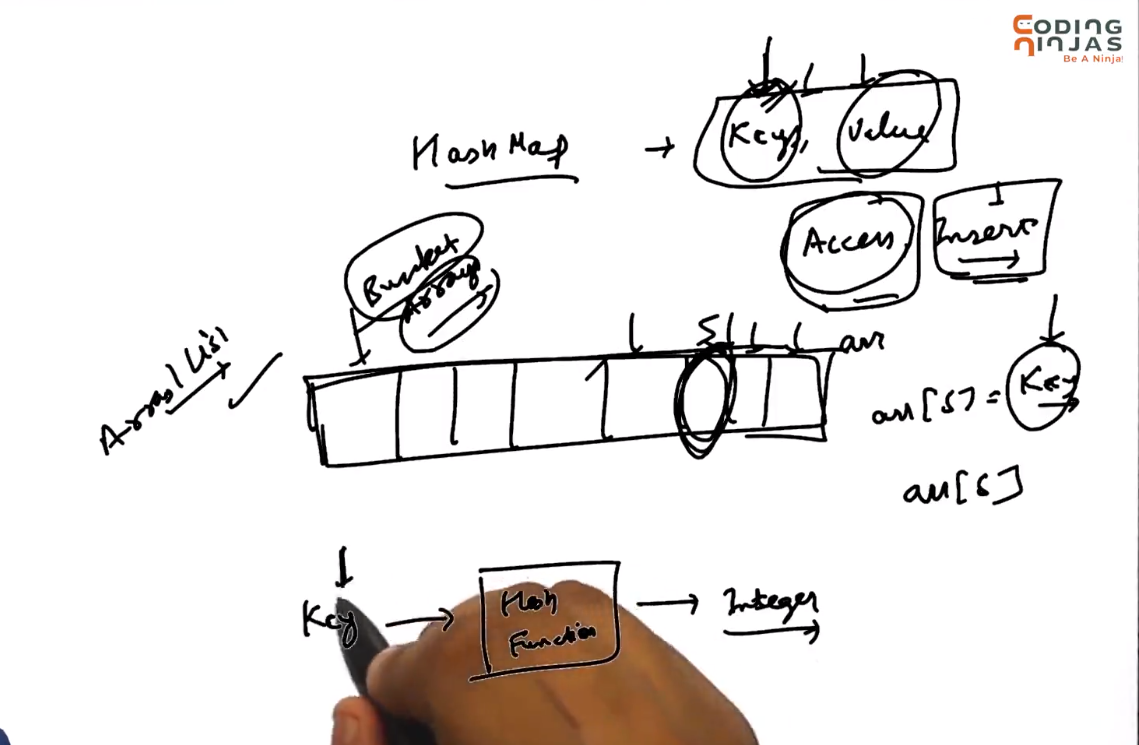 CODING
NINJAS
Be A Ninja!
HashMap → Key, Value
Access Insert
Bucket
Array
Array List
5
arr
arr[5] = Key
arr[5]
Key → Hash
Function → Integer